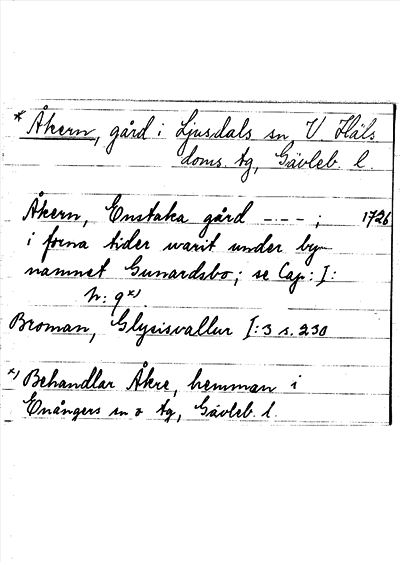 * Åkern, gård i Ljusdals sn V. Häls
doms. tg, Gävleb. l.
Åkern, Enstaka gård -.-.- ; 1726
i forna tider warit under by-
namnet Gunardsbo; se Cap: I:
n: 9 x).
Broman, Glysisvallur I:3 s. 230
x) Behandlar Åkre, hemman i
Enångers sn o tg, Gävleb. l.